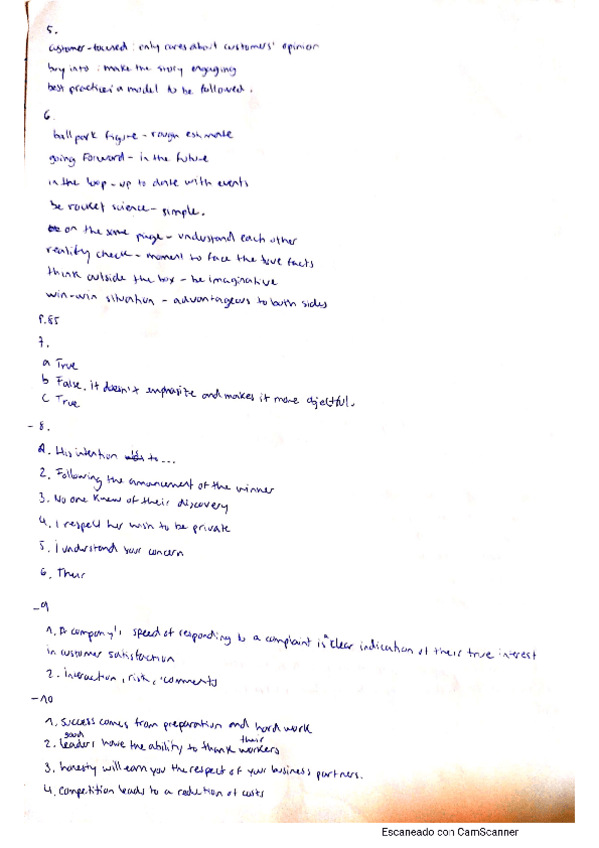 5.
customer-focused: only cares about customers' opinion
buy into: make the story engaging
best practice: a model to be followed.
6.
ball park figure - rough estimate
going forward - in the future
in the loop - up to date with events
be rocket science - simple.
on the same page - understand each other
reality check - moment to face the true facts
think outside the box - be imaginative
win-win situation - advantageous to both sides
P.85
7.
a True
b False, it doesn't emphasize and makes it more
c True
- 8.
1. His intention to...
2. Following the anouncement of the winner
3. No one knew of their discovery
4. I respect her wish to be private
5. I understand your concern
6. Their
- 9
1. A company's speed of responding to a complaint is a clear indication of their true interest
in customer satisfaction
2. interaction, risk, comments
- 10
1. success comes from preparation and hard work
2. good leaders have the ability to thank their workers
3. honesty will earn you the respect of your business partners.
4. competition leads to a reduction of costs
Escaneado con CamScanner